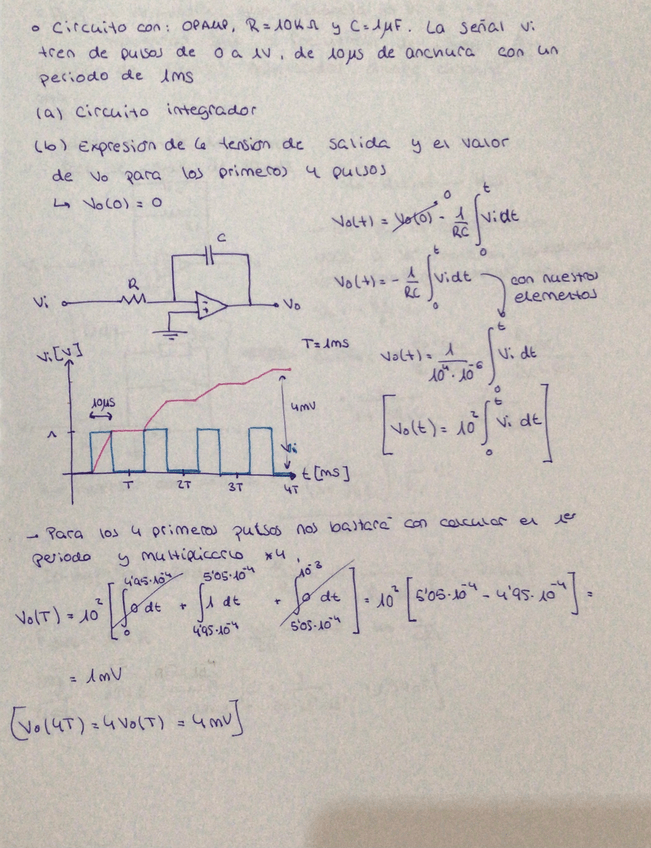 o Circuito con: OPAMP, R=10KΩ y C=1μF. La señal vi
tren de pulsos de 0 a 1V, de 10μs de anchura con un
periodo de 1ms
(a) Circuito integrador
(b) Expresión de la tensión de salida y el valor
de vo para los primeros 4 pulsos
↳ Vo(0) = 0
Vo(t) = Vo(0) - 1/RC ∫₀ᵗ Vi dt
0
Vo(t) = - 1/RC ∫₀ᵗ Vi dt
con nuestros
elementos
C
R
Vi
Vo
-
+
T=1ms
Vo(t) = 1/(10⁴·10⁻⁶) ∫₀ᵗ Vi dt
[Vo(t) = 10² ∫₀ᵗ Vi dt]
Vi[V]
10μs
1
4mV
Vi
t[ms]
T 2T 3T 4T
→ Para los 4 primeros pulsos nos bastará con calcular el 1er
periodo y multiplicarlo *4.
Vo(T) = 10² [∫₀^4'95·10⁻⁴ 0 dt + ∫_4'95·10⁻⁴^5'05·10⁻⁴ 1 dt + ∫_5'05·10⁻⁴^10⁻³ 0 dt] = 10² [5'05·10⁻⁴ - 4'95·10⁻⁴] =
= 1mV
[Vo(4T) = 4Vo(T) = 4mV]